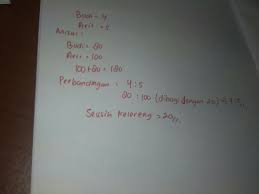 Budi = 4
Arif = 5
Budi = 80
Arif = 100
100 + 80 = 180
Perbandingan : 4 : 5
80 : 100 (dibagi dengan 20) = 4 : 5
Selisih kelereng = 20